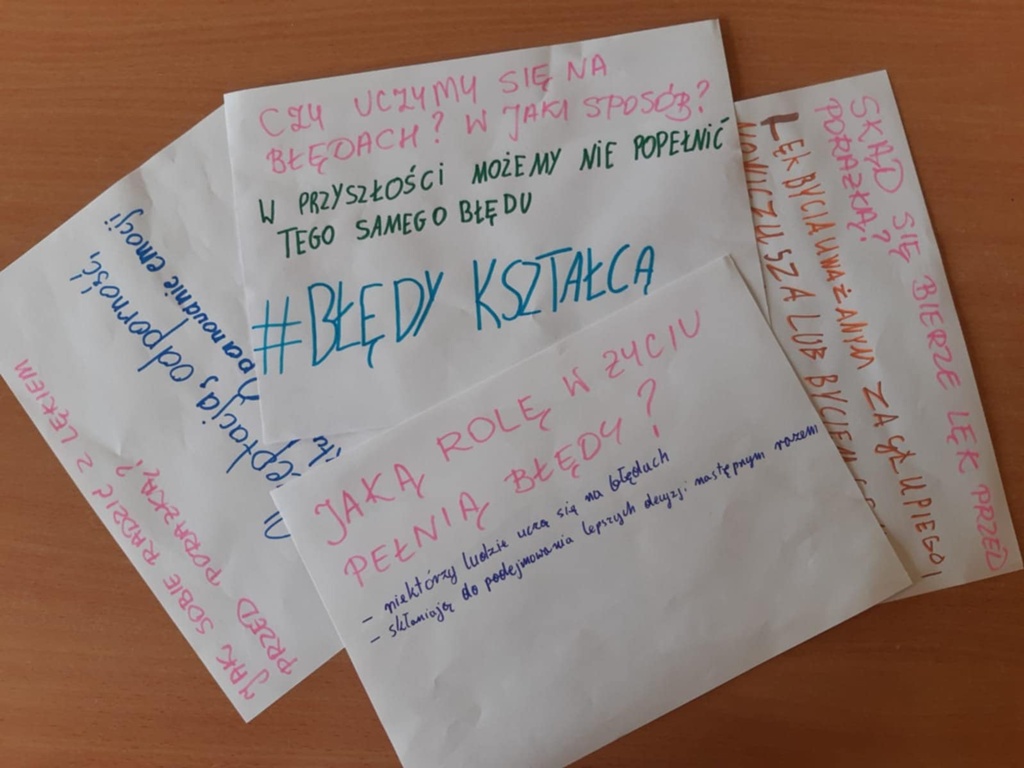 CZY UCZYMY SIĘ NA
BŁĘDACH? W JAKI SPOSÓB?
W PRZYSZŁOŚCI MOŻEMY NIE POPEŁNIĆ
TEGO SAMEGO BŁĘDU
#BŁĘDY KSZTAŁCĄ
JAKĄ ROLĘ W ŻYCIU
PEŁNIĄ BŁĘDY?
- niektórzy ludzie uczą się na błędach
- skłaniają do podejmowania lepszych decyzji następnym razem
SKĄD SIĘ BIERZE LĘK PRZED
PORAŻKĄ?
LĘK BYCIA UWAŻANYM ZA GŁUPIEGO,
NOWICJUSZA LUB BYCIEM
JAK SOBIE RADZIĆ Z LĘKIEM
PRZED PORAŻKĄ?
odporność,
emocji